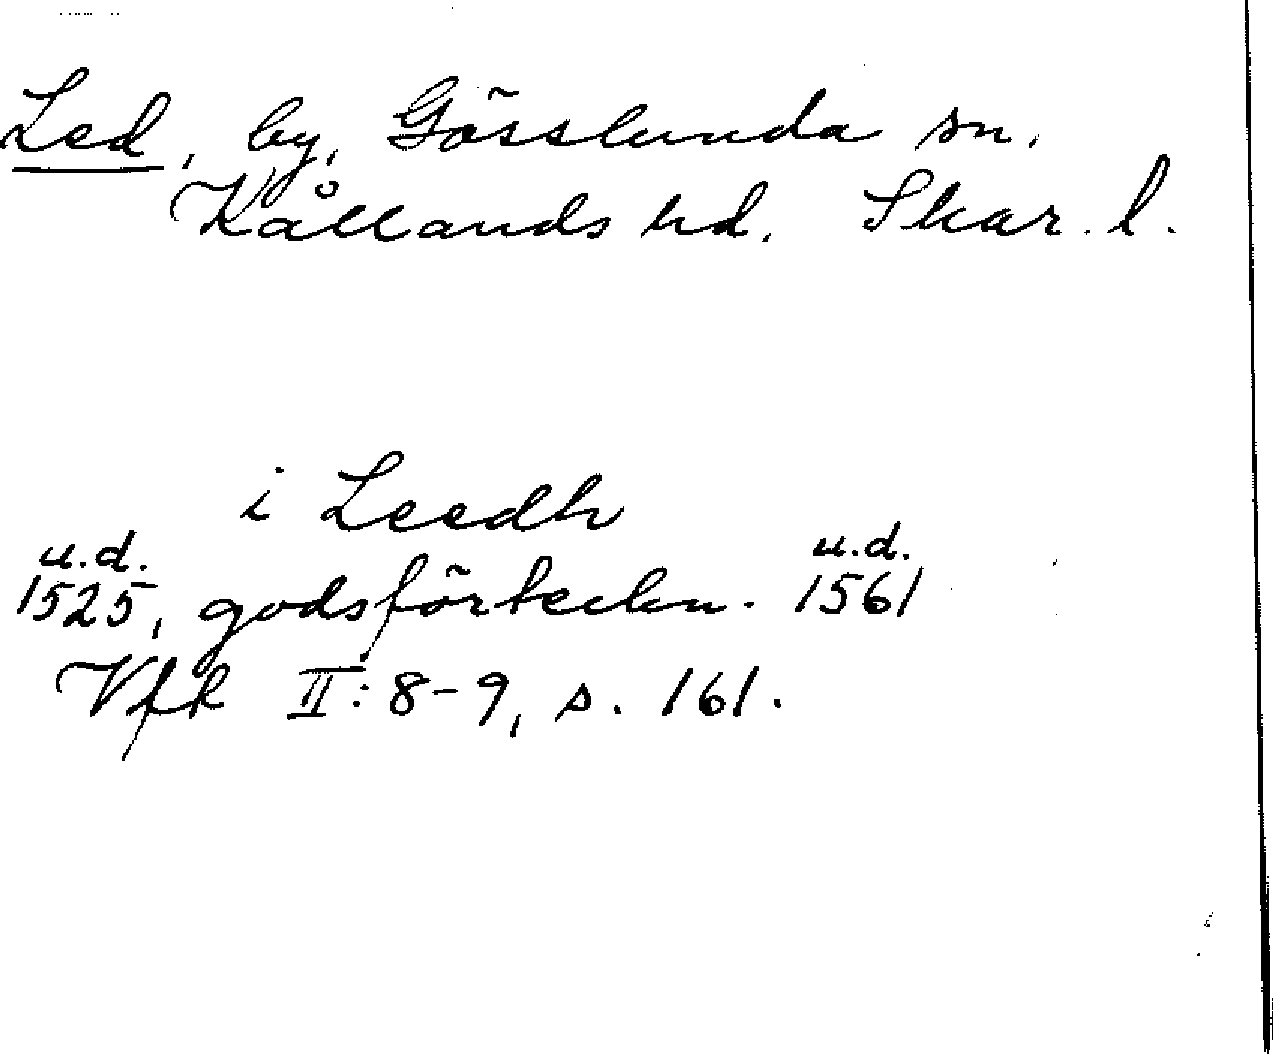 Led, by, Gösslunda sn,
Kållands hd. Skar. l.
i Leedh
u.d. u.d.
1525, godsförteckn. 1561
Vfk II: 8-9, s. 161.